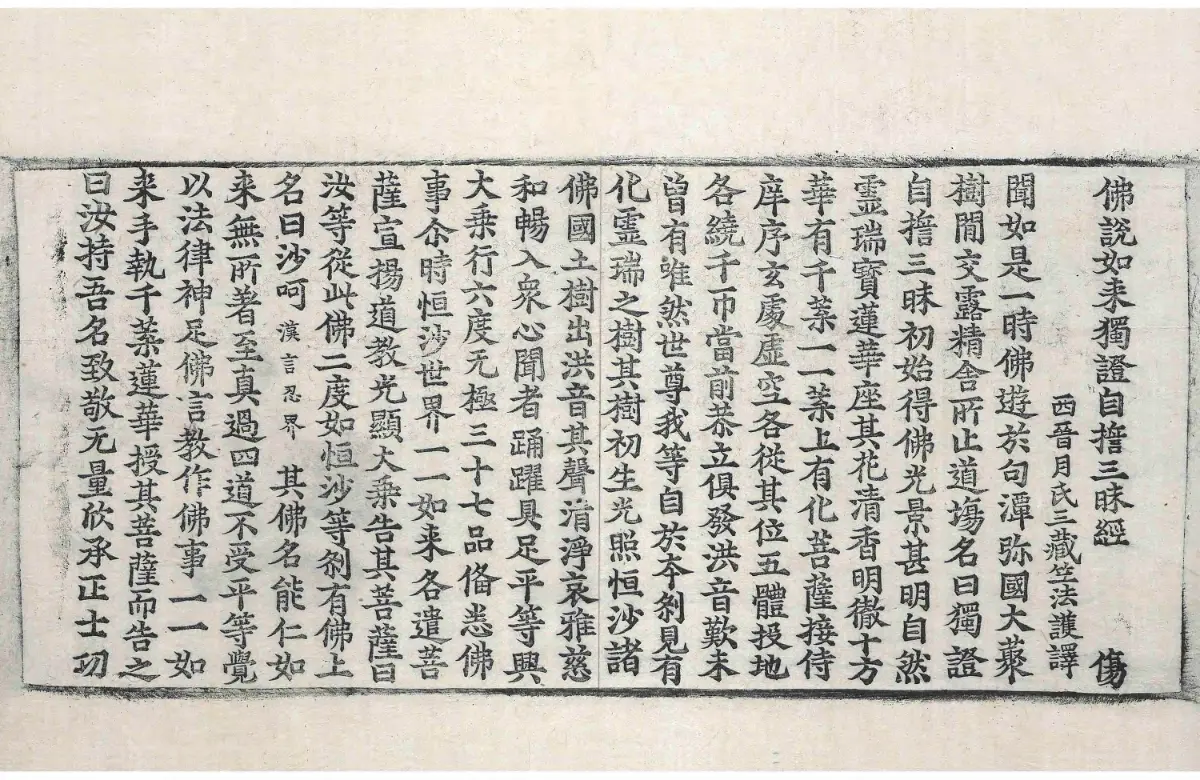 佛說如来獨證自擔三昧經　傷
西晉月氏三藏竺法護譯
聞如是一時佛遊於句潭弥國大藂
樹閒交露精舍所止道場名曰獨證
自擔三昧初始得佛光景甚明自然
霊瑞寶蓮華座其花清香明徹十方
華有千葉一一葉上有化菩薩接侍
庠序玄處虛空各從其位五體投地
各繞千帀當前恭立俱發洪音歎未
曾有唯然世尊我等自於夲刹見有
化霊瑞之樹其樹初生光照恒沙諸
佛國土樹出洪音其聲清淨哀雅慈
和暢入衆心聞者踊躍具足平等興
大乗行六度无極三十七品俻悉佛
事尒時恒沙世界一一如来各遣菩
薩宣揚道教光顯大乗告其菩薩曰
汝等從此佛二度如恒沙等刹有佛上
名曰沙呵漢言忍界其佛名能仁如
来無所著至真過四道不受平等覺
以法律神足佛言教作佛事一一如
来手執千葉蓮華授其菩薩而告之
曰汝持吾名致敬无量欣承正士㓛